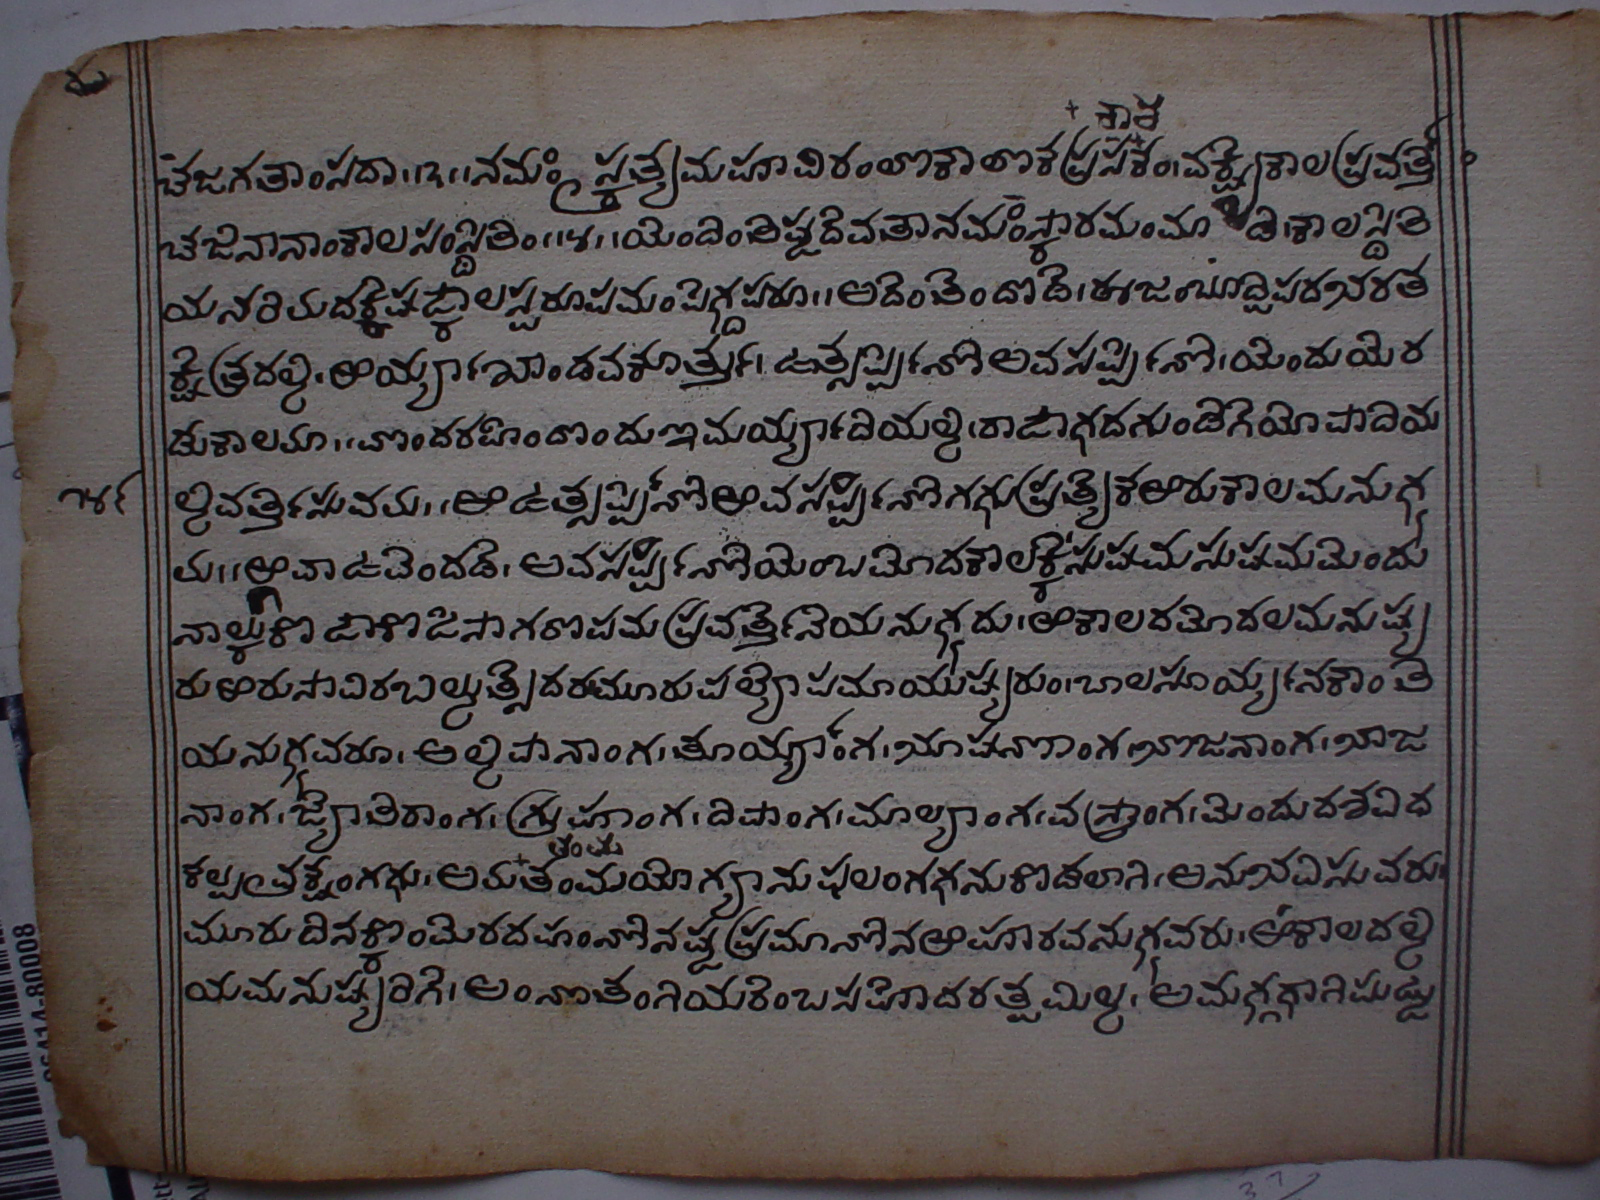 ಶಾಶ
ಚೆಜಗತಾಂಸದಾ ೩ ನಮಸ್ಕೃತ್ಯೆಮಹಾವಿರಂಲೊಕಾಲೊಕಪ್ರಸಕಂ ವಕ್ಷ್ಯೆಕಾಲಪ್ರವರ್ತ್ತೆ
ಚಜಿನಾನಾಂಕಾಲಸಂಸ್ಥಿತಿಂ ೪ ಯೆಂದಿಂತಿಷ್ಟದೆವತಾನಮಂಸ್ಕಾರಮಂಮಾಡಿಕಾಲಸ್ಥಿತಿ
ಯನರಿಮದಕ್ಕೆಷಟ್ಕಾಲಸ್ವರೂಪಮಂಪೆಗ್ದಪರೂ ಅದೆಂತೆಂದೊಡೆ ಈಜಂಬೂದ್ವಿಪದಭರತ
ಕ್ಷೆತ್ರದಲ್ಲಿ ಆರ್ಯ್ಯಾಖಾಂಡವಳಾರ್ತ್ತು ಉತ್ಸರ್ಪ್ಪಿಣಿ ಅವಸರ್ಪ್ಪಿಣಿ ಯೆಂದುಯೆರ
ಡುಕಾಲಮಾ ವೊಂದರಹಿಂದೊಂದುಇಮರ್ಯ್ಯಾದಿಯಲ್ಲಿ ರಾಟಾಳದಗುಂಡಿಗೆಯೋಪಾದಿಯ
೧೪೯ ಲ್ಲಿವರ್ತ್ತಿಸುವವು ಆಉತ್ಸರ್ಪ್ಪಿಣಿಅವಸರ್ಪ್ಪಿಣಿಗಳುಪ್ರತ್ಯೆಕಆರುಕಾಲಮನುಳ್ಳ
ವು ಆವಾಉವೆಂದಡೆ ಅವಸರ್ಪ್ಪಿಣಿಯೆಂಬಮೊದಲಕಾಲಕ್ಕೆಸುಷಮಸುಷಮಮೆಂದು
ನಾಲ್ಕುಕೊಟಾಕೊಟಿಸಾಗರೊಪಮಪ್ರವರ್ತ್ತನೆಯನುಳ್ಳದು ಆಕಾಲದಮೊದಲಮನುಷ್ಯ
ರುಆರುಸಾವಿರಬಿಲ್ಲುತ್ಸೆದರುಮೂರುಪಲ್ಯೊಪಮಾಯುಷ್ಯರುಂ ಬಾಲಸೂರ್ಯ್ಯನಕಾಂತಿ
ಯನುಳ್ಳವರೂ ಅಲ್ಲಿಪಾನಾಂಗ ತೂರ್ಯ್ಯಾಂಗ ಭೂಷಣಾಂಗಭೊಜನಾಂಗ ಭಾಜ
ನಾಂಗ ಜ್ಯೊತಿರಾಂಗ ಗ್ರುಹಾಂಗ ದಿಪಾಂಗ ಮಾಲ್ಯಾಂಗ ವಸ್ತ್ರಾಂಗ ಮೆಂದುದಶವಿಧ
ಕಲ್ಪವ್ರಕ್ಷಂಗಳು ಅಮತಂಮಯೋಗ್ಯಾನುಫಲಂಗಳನುಕೊಡಲಾಗಿ ಅನುಭವಿಸುವರು
ತಂತು
ಮೂರುದಿನಕ್ಕೊಂಮೆಬದಹಂಣಿನಷ್ಟಪ್ರಮಾಣಿನಆಹಾರವನುಳ್ಳವರು ಆಕಾಲದಲ್ಲಿ
ಯಮನುಷ್ಯರಿಗೆ ಅಂಣತಂಗಿಯರೆಂಬಸಹೊದರತ್ವಮಿಲ್ಲ ಅಮಳ್ಗಳಾಗಿಪುಟ್ಟು